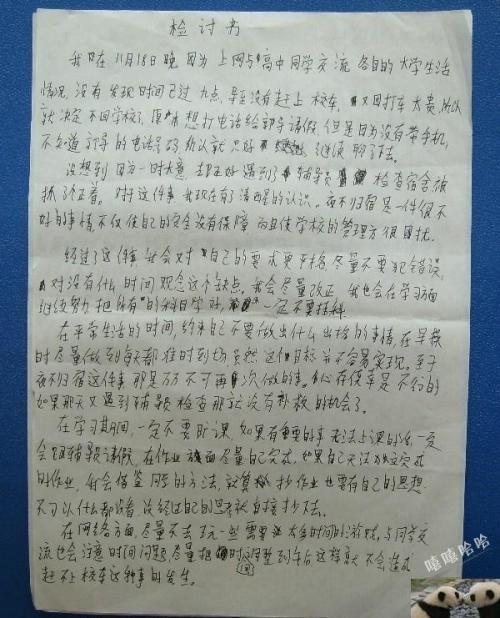 检讨书
我在11月18日晚因为上网与高中同学交流各自的大学生活
情况,没有发现时间已过九点,导致没有赶上校车,又因打车太贵,所以
就决定不回学校了,原本想打电话给辅导请假,但是因为没有带手机,
不知道订导的电话号码所以就只好继续聊了下去。
没想到因为一时大意却正好遇到了辅导员检查宿舍被
抓了个正着。对于这件事我现在有了清醒的认识。夜不归宿是一件很不
好的事情不仅使自己的安全没有保障而且使学校的管理方很困扰。
经过了这件事我会对自己的要求更严格尽量不要犯错误,
对没有什么时间观念这个缺点,我会尽量改正,我也会在学习方面
继续努力把所有的科目学好,一定不要挂科
在平常生活的时间,约束自己不要做出什么出格的事情,在早操
时尽量做到每天都准时到场虽然这个目标并不容易实现。至于
夜不归宿这件事那是万万不可再次做的事。心存侥幸是不行的
如果那天又遇到辅导员检查那就没有补救的机会了。
在学习期间,一定不要旷课,如果有重要的事无法上课的话,一定
会跟辅导员请假,在作业方面尽量自己完成,如果自己无法完成
的作业,我会借鉴同学的方法,就算抄作业也要有自己的思想
不可以什么都没看没经过自己的思考就直接抄下去。
在网络方面,尽量不去玩一些需要太多时间的游戏,与同学交
流也会注意时间问题,尽量把时间调整到午后这样就不会造成
赶不上校车这种事的发生。
嘻嘻哈哈